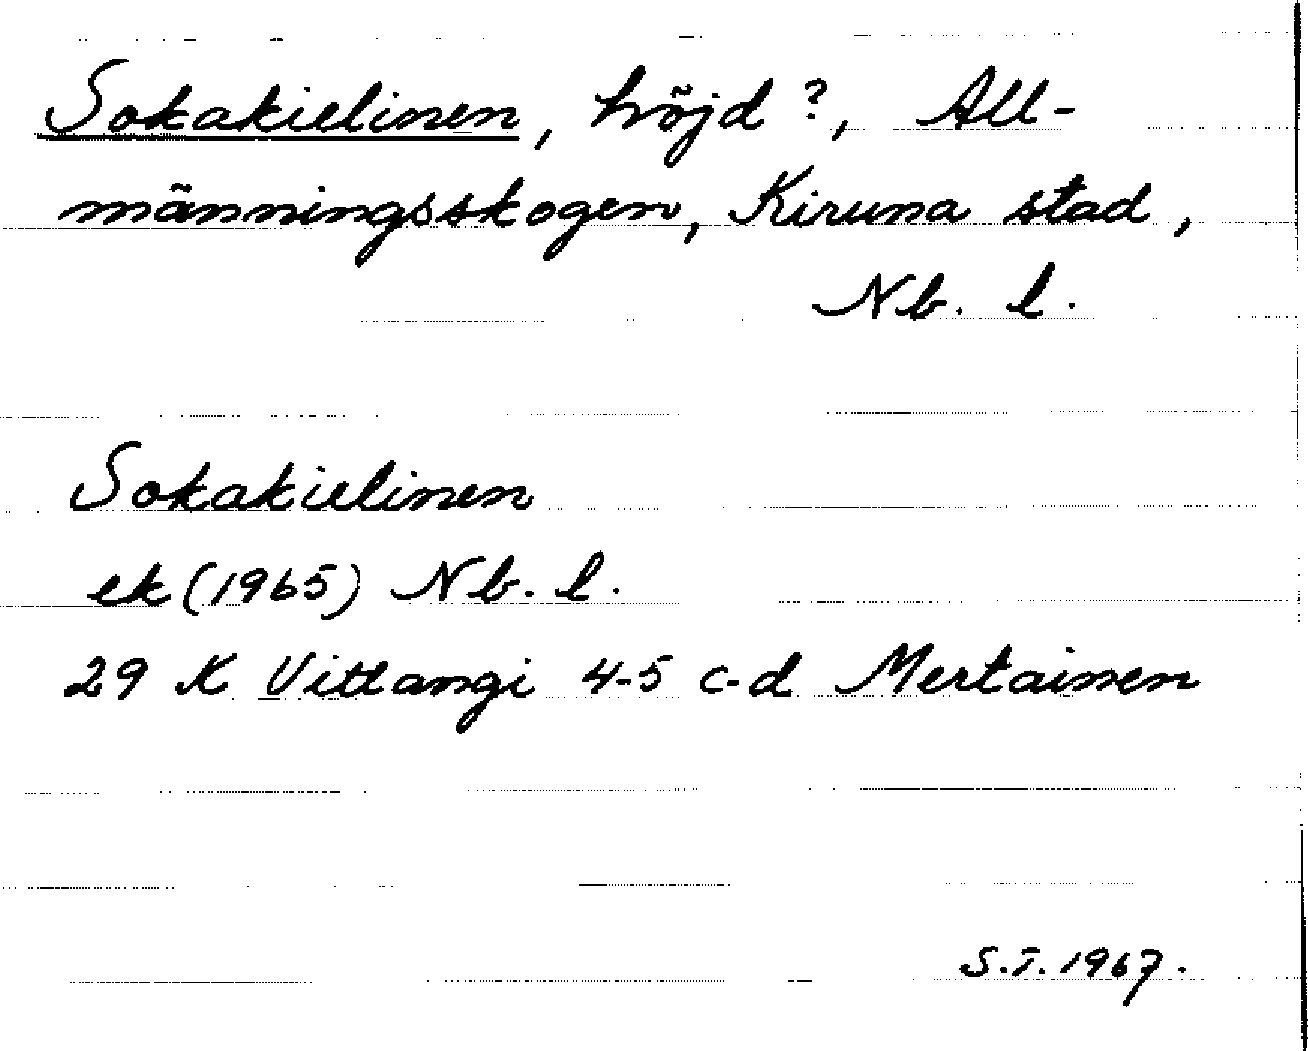 Sokakielinen, höjd ?, All-
männingsskogen, Kiruna stad,
Nb. l.
Sokakielinen
ek (1965) Nb. l.
29 K Vittangi 4-5 c-d Mertainen
S.T. 1967.